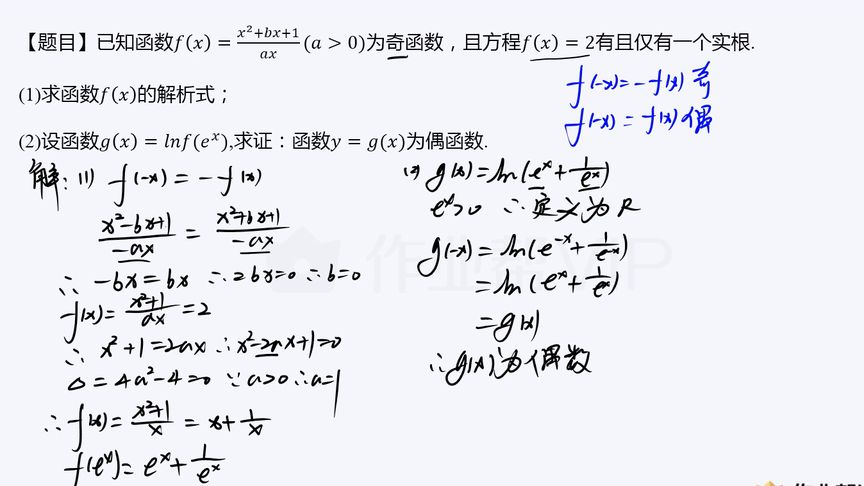 【题目】已知函数f(x)=(x²+bx+1)/(ax)(a>0)为奇函数，且方程f(x)=2有且仅有一个实根.
f(-x)=-f(x) 奇
(1)求函数f(x)的解析式；
f(-x)=f(x) 偶
(2)设函数g(x)=lnf(eˣ),求证：函数y=g(x)为偶函数.
解:(1) f(-x)=-f(x)
(x²-bx+1)/(-ax)=(x²+bx+1)/(-ax)
∴ -bx=bx ∴2bx=0 ∴b=0
f(x)=(x²+1)/(ax)=2
∴ x²+1=2ax ∴x²-2ax+1=0
Δ=4a²-4=0 ∵a>0 ∴a=1
∴ f(x)=(x²+1)/x=x+1/x
f(eˣ)=eˣ+1/eˣ
(2) g(x)=ln(eˣ+1/eˣ)
eˣ>0 ∴定义为R
g(-x)=ln(e⁻ˣ+1/e⁻ˣ)
=ln(eˣ+1/eˣ)
=g(x)
∴g(x)为偶数
作业帮VIP